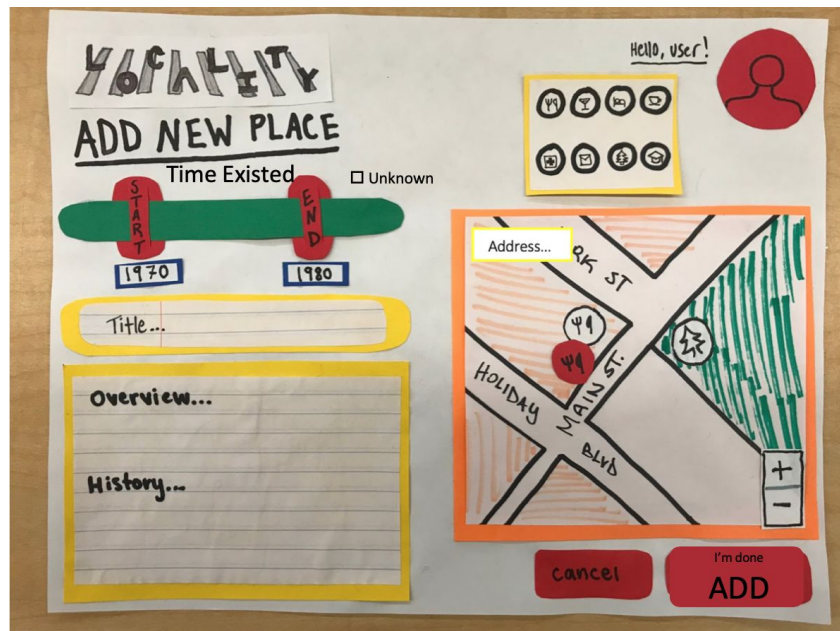 LOCALITY
Hello, user!
ADD NEW PLACE
Time Existed
Unknown
START
END
1970
1980
Title...
Overview...
History...
Address...
RK ST
MAIN ST.
HOLIDAY BLVD
+
-
cancel
I'm done
ADD